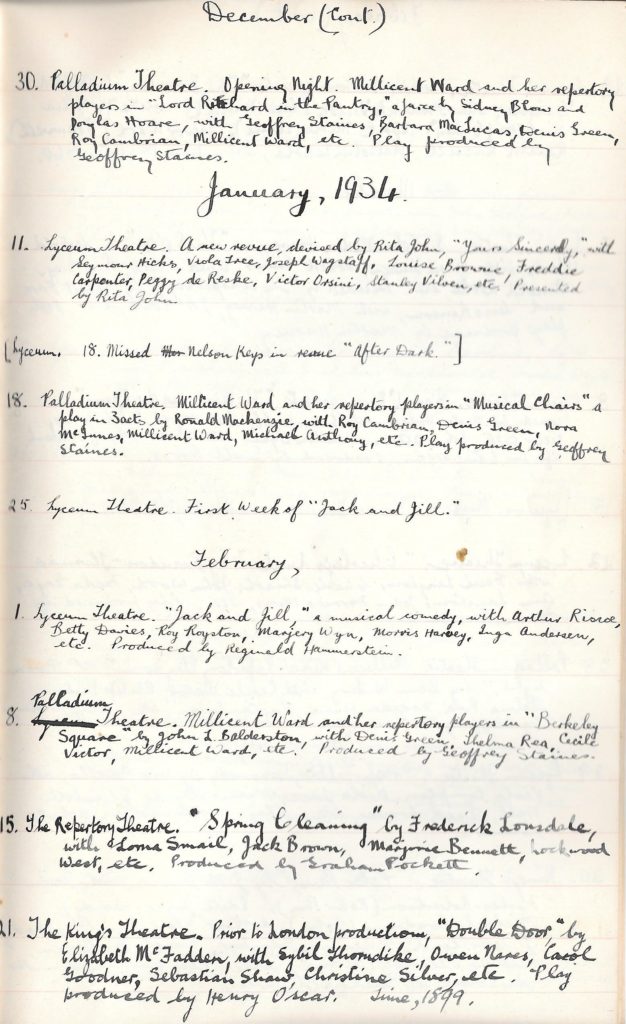 December (Cont.)
30. Palladium Theatre. Opening Night. Millicent Ward and her repertory
players in "Lord Richard in the Pantry," a farce by Sidney Blow and
Douglas Hoare, with Geoffrey Staines, Barbara MacLucas, Denis Green,
Roy Cambrian, Millicent Ward, etc. Play produced by
Geoffrey Staines.
January, 1934.
11. Lyceum Theatre. A new revue, devised by Rita John, "Yours Sincerely," with
Seymour Hicks, Viola Tree, Joseph Wagstaff, Louise Browne, Freddie
Carpenter, Peggy de Reske, Victor Orsini, Stanley Vilven, etc. Presented
by Rita John
[Lyceum. 18. Missed Nelson Keys in revue "After Dark."]
18. Palladium Theatre. Millicent Ward and her repertory players in "Musical Chairs" a
play in 3 acts by Ronald Mackenzie, with Roy Cambrian, Denis Green, Nora
McInnes, Millicent Ward, Michael Anthony, etc. Play produced by Geoffrey
Staines.
25. Lyceum Theatre. First Week of "Jack and Jill."
February,
1. Lyceum Theatre. "Jack and Jill," a musical comedy, with Arthur Riscoe,
Betty Davies, Roy Royston, Marjery Wyn, Morris Harvey, Inga Andersen,
etc. Produced by Reginald Hammerstein.
Palladium
8. Theatre. Millicent Ward and her repertory players in "Berkeley
Square" by John L. Balderston, with Denis Green, Thelma Rea, Cecile
Victor, Millicent Ward, etc. Produced by Geoffrey Staines.
15. The Repertory Theatre. "Spring Cleaning" by Frederick Lonsdale,
with Lorna Smail, Jack Brown, Marjorie Bennett, Lockwood
West, etc. Produced by Graham Pockett.
21. The King's Theatre. Prior to London production, "Double Door" by
Elizabeth McFadden, with Sybil Thorndike, Owen Nares, Carol
Goodner, Sebastian Shaw, Christine Silver, etc. Play
produced by Henry Oscar. Time, 1899.